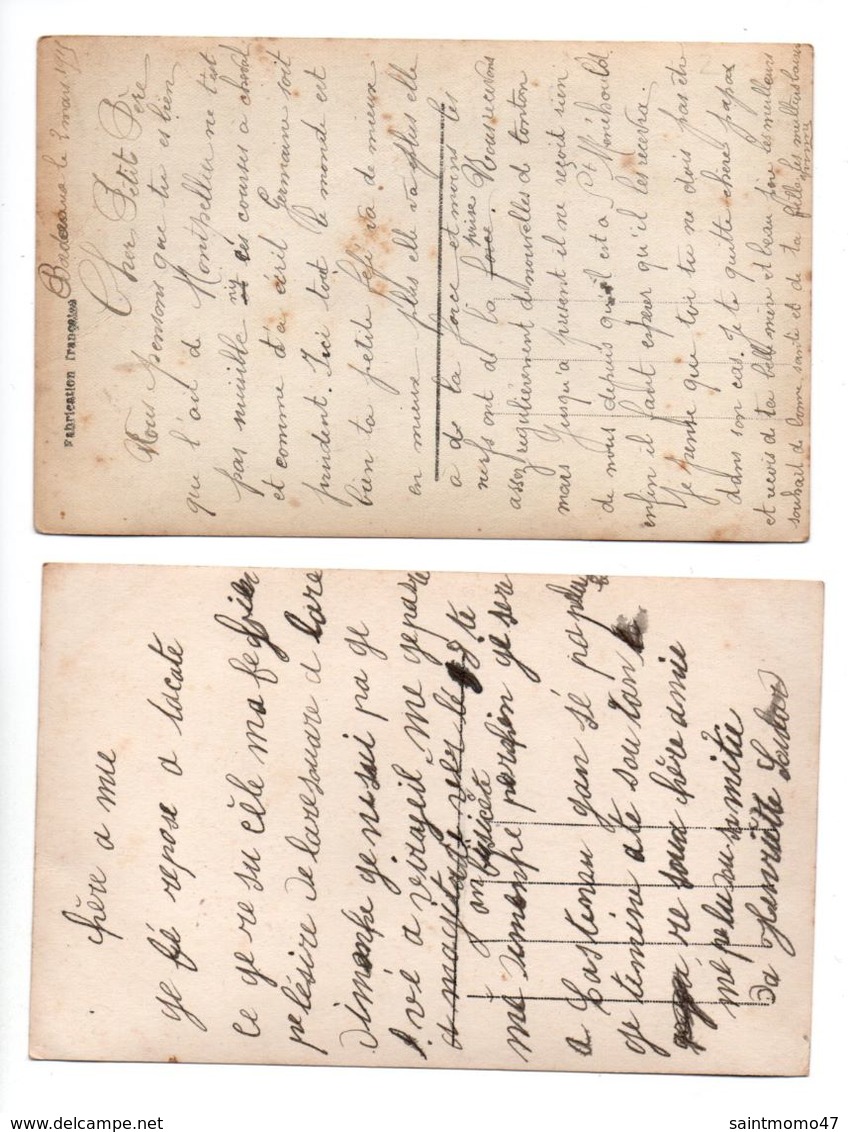 Fabrication française
Bordeaux le 2 mars 1915
Cher Petit Père
Nous pensons que tu es bien
que l'air de Montpellier ne t'est
pas nuisible ni ces courses a cheval
et comme t'a écrit Germaine soit
prudent. Ici tout le monde est
bien ta petite Fifi va de mieux
en mieux plus elle va plus elle
a de la force et moins les
nerfs ont de la prise. Nous recevons
assez regulièrement de nouvelles d tonton
mais jusqu'a present il ne reçoid rien
de nous depuis qu'il est a St Menehould
enfin il faut esperer qu'il les recevra.
Je pense que toi tu ne dois pas etre
dans son cas. Je te quitte chere papa
et recois d ta belle mère et beau père les meilleurs
souhait de bonne santé et de ta fille les meilleurs baisers
chère a mie
ge fé repose a tacate
ce ge re su cèle ma fe bien
pelésire de laresouare a lore
dimanhe ge nisui pa ge
vé a verageil me ge pa
me dimenhe perchen ge ser
a Castenau gan sé pa plu
ge témine ate soutan
re soua chère amie
mé pelu su mitiè
Da Henriètte
saintmomo47